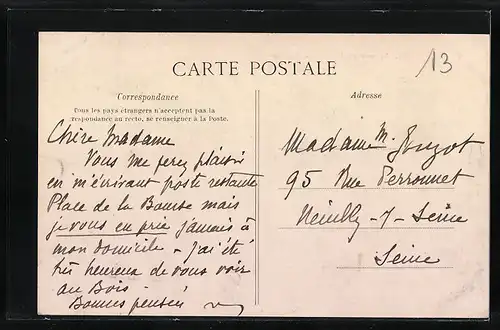 CARTE POSTALE
13
Correspondance
Tous les pays étrangers n'acceptent pas la
respondance au recto, se renseigner à la Poste.
Chère Madame
Vous me ferez plaisir
en m'écrivant poste restante
Place de la Bourse mais
je vous en prie jamais à
mon domicile - j'ai été
très heureux de vous voir
au Bois -
Bonnes pensées
Adresse
Madame M.
95 Rue Perronnet
Neuilly - s - Seine
Seine